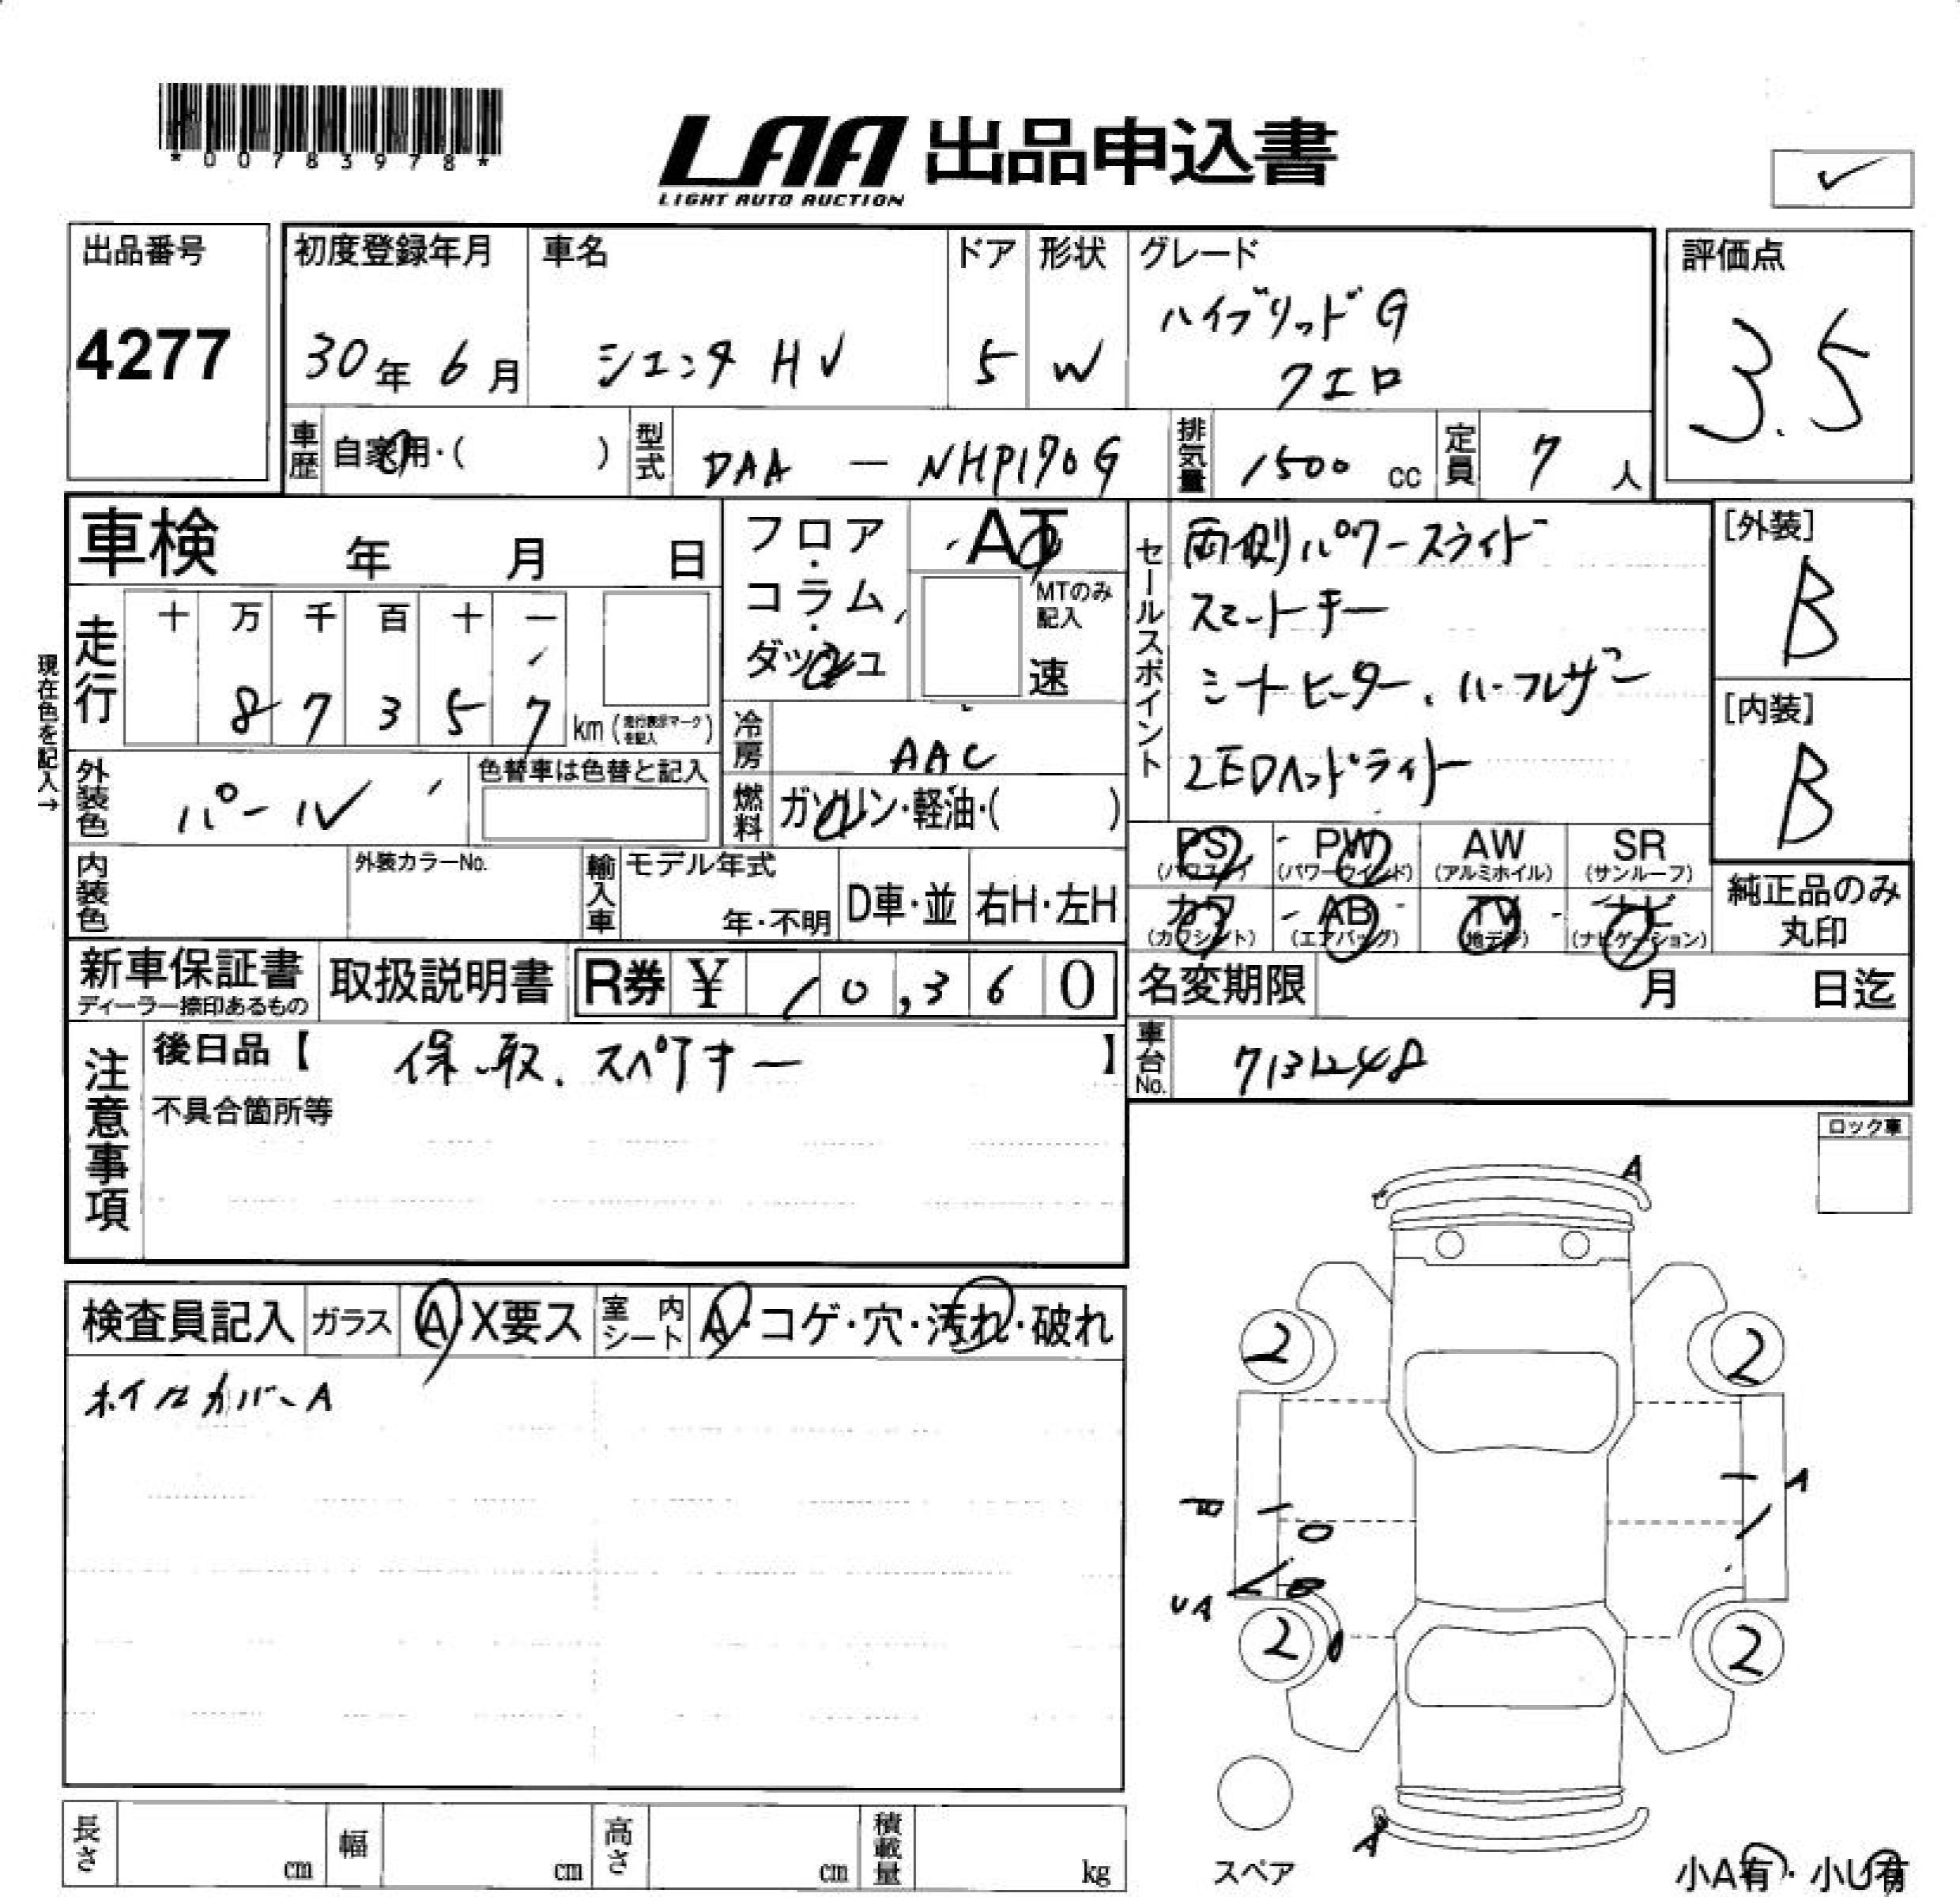 *00783978*
LAA 出品申込書
LIGHT AUTO AUCTION
✓
出品番号
4277
初度登録年月
30年 6月
車名
シエンタ HV
ドア
5
形状
W
グレード
ハイブリッド G
クエロ
評価点
3.5
車歴
自家用・( )
型式
DAA - NHP170G
排気量
1500 cc
定員
7 人
車検 年 月 日
フロア・コラム・ダッシュ
AT
MTのみ記入
速
セールスポイント
両側パワースライド
スマートキー
シートヒーター、ハーフレザー
LEDヘッドライト
[外装]
B
[内装]
B
現在色を記入→
走行
十 万 千 百 十 一
8 7 3 5 7
km (走行表示マークを記入)
冷房
AAC
外装色
パール
色替車は色替と記入
燃料
ガソリン・軽油・( )
PS
(パワステ)
PW
(パワーウインド)
AW
(アルミホイル)
SR
(サンルーフ)
カワ
(カワシート)
AB
(エアバッグ)
TV
(地デジ)
ナビ
(ナビゲーション)
純正品のみ
丸印
内装色
外装カラーNo.
輸入車
モデル年式
年・不明
D車・並
右H・左H
新車保証書
ディーラー捺印あるもの
取扱説明書
R券 ¥ 10,360
名変期限 月 日迄
注意事項
後日品【 保、取、スペアキー 】
不具合箇所等
車台No.
ロック車
検査員記入
ガラス
A・X要ス
室内シート
A・コゲ・穴・汚れ・破れ
ホイルカバーA
A
2
2
A
UA
2
2
A
スペア
小A有・小U有
長さ cm
幅 cm
高さ cm
積載量 kg